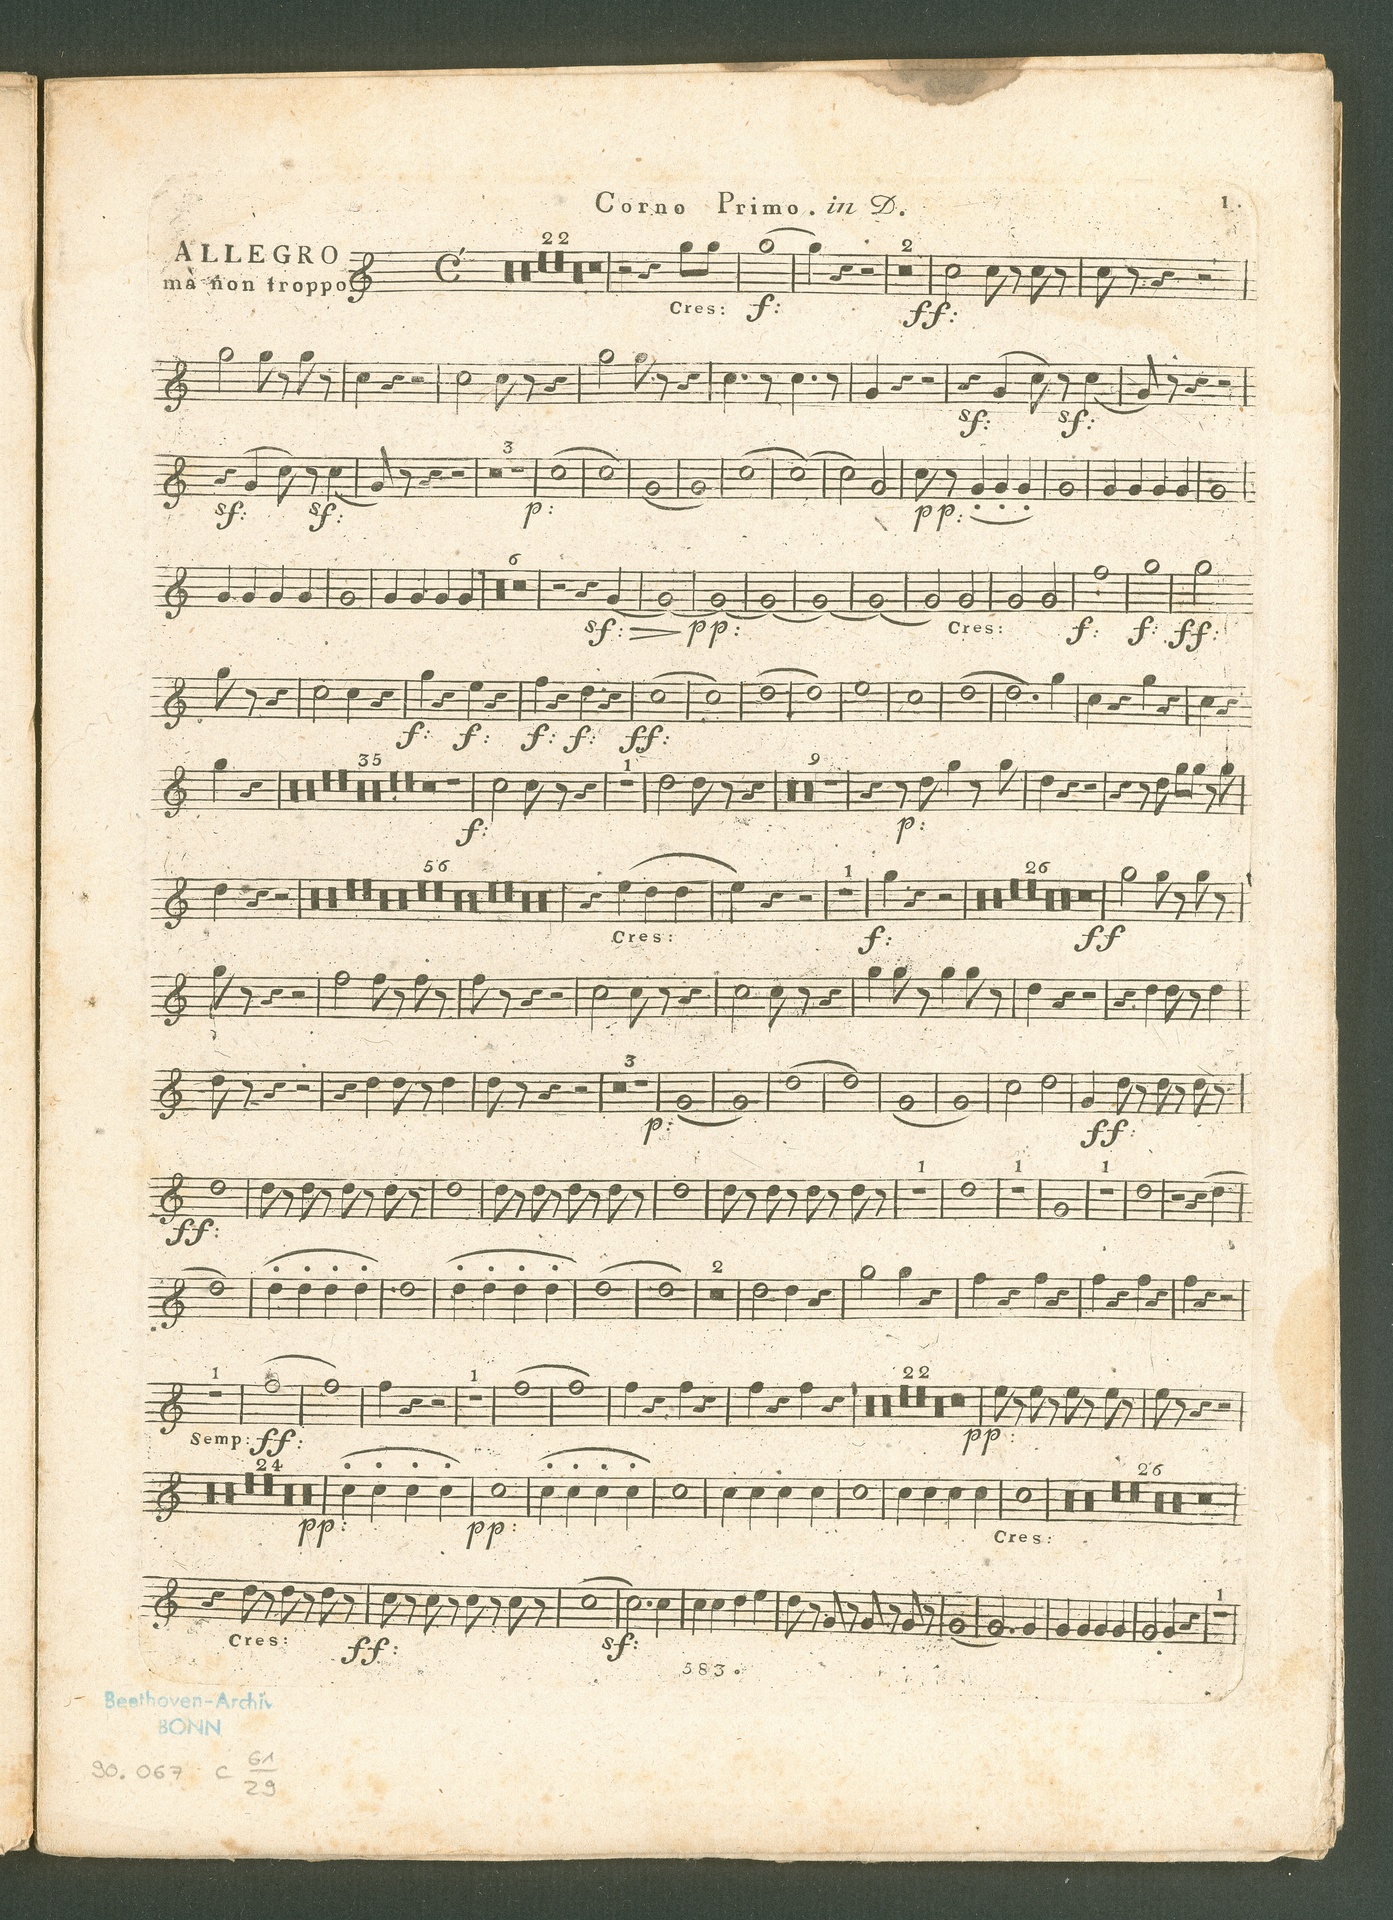 Corno Primo. in D.
1.
ALLEGRO
mà non troppo
22
2
Cres: f: ff:
sf: sf:
3
sf: sf: p: pp:
6
sf: pp: Cres: f: f: ff:
f: f: f: f: ff:
35 1 9
f: p:
56 1 26
Cres: f: ff
3
p: ff:
1 1 1
ff:
2
1 1 22
Semp: ff: pp:
24 26
pp: pp: Cres:
1
Cres: ff: sf:
583.
Beethoven-Archiv
BONN
90. 067 C 61
29